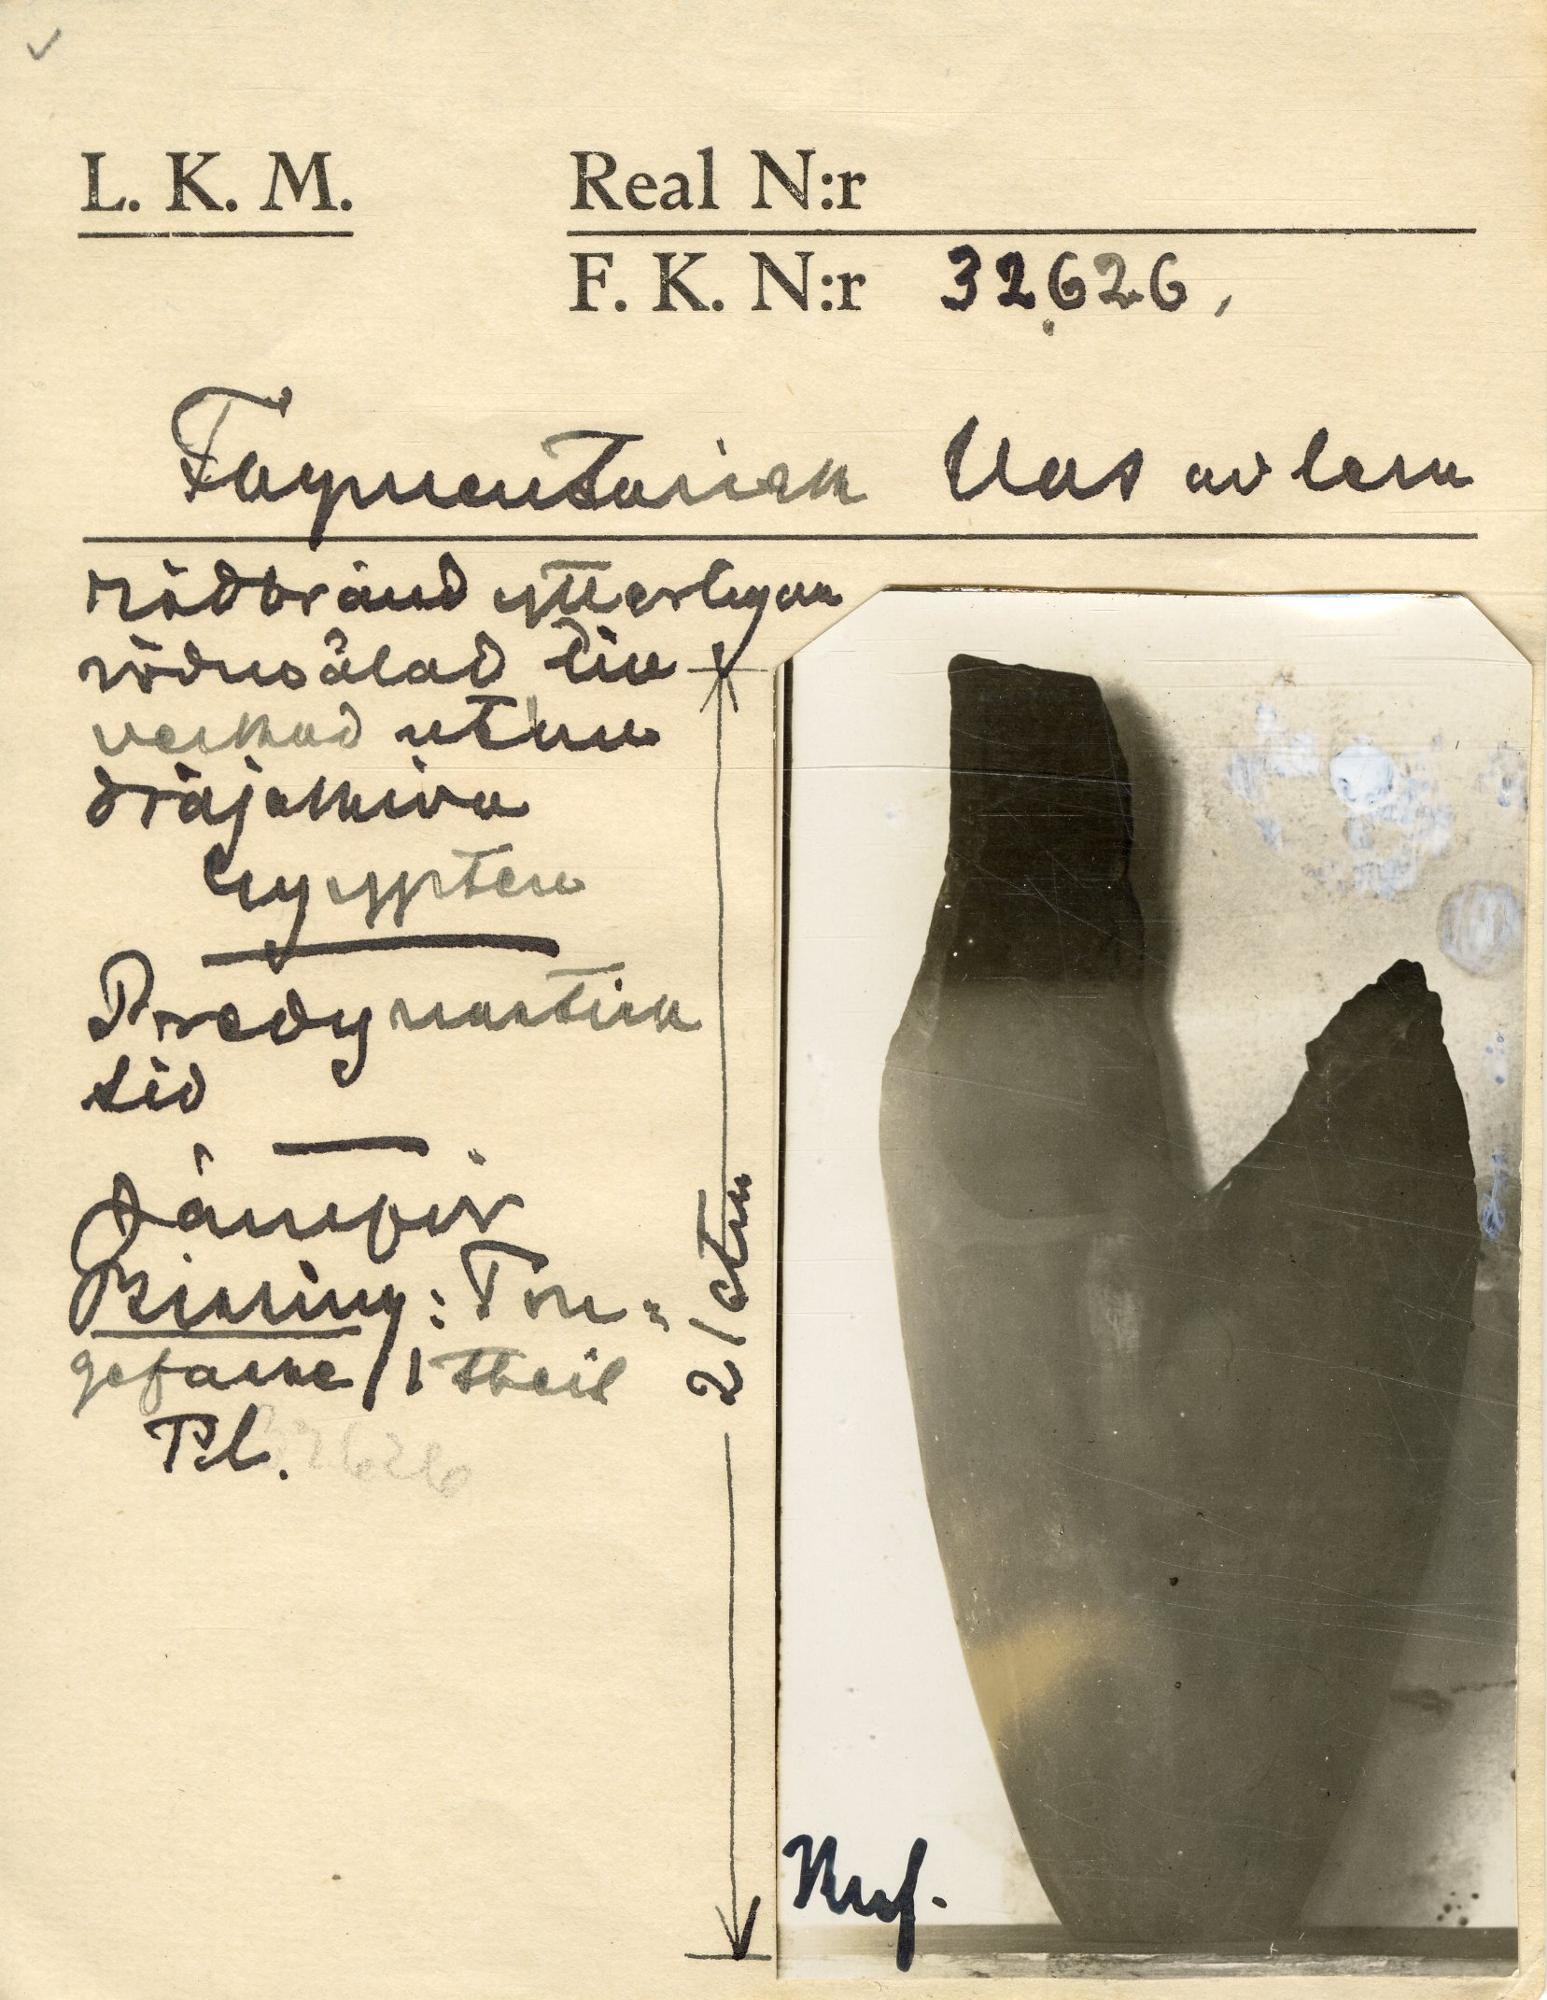 L. K. M.
Real N:r
F. K. N:r 32626,
Fragmentarisk Vas av lera
rödbränd ytterligare
rödmålad till
verkad utan
dräjskiva
Egypten
Predynastisk
tid
Jämför
Bissing: Ton=
gefaesse / I theil
Pl.
32626
21 ctm